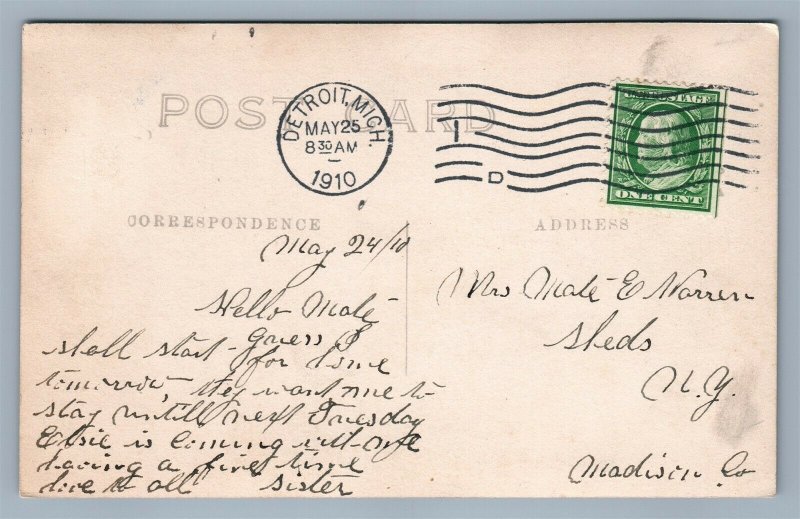 POST CARD
DETROIT, MICH.
MAY 25
8 30 AM
1910
D
POSTAGE
ONE CENT
CORRESPONDENCE
ADDRESS
May 24/10
Hello Mate
Guess I
shall start for home
tomorrow, they want me to
stay untill next Tuesday
Elsie is coming with me
having a fine time
love to all Sister
Mrs Mate E Warren
Sheds
N.Y.
Madison Co